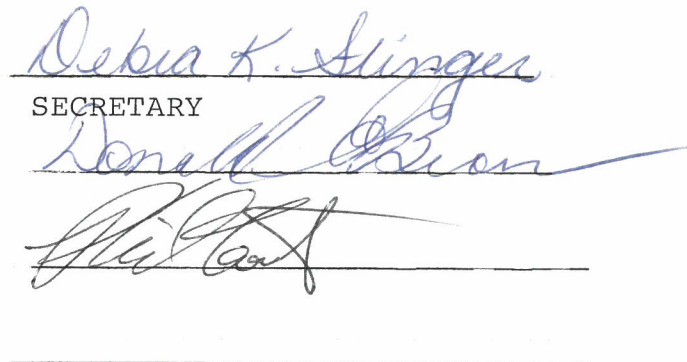 Debra K. Slinger
SECRETARY
Donald O'Brien